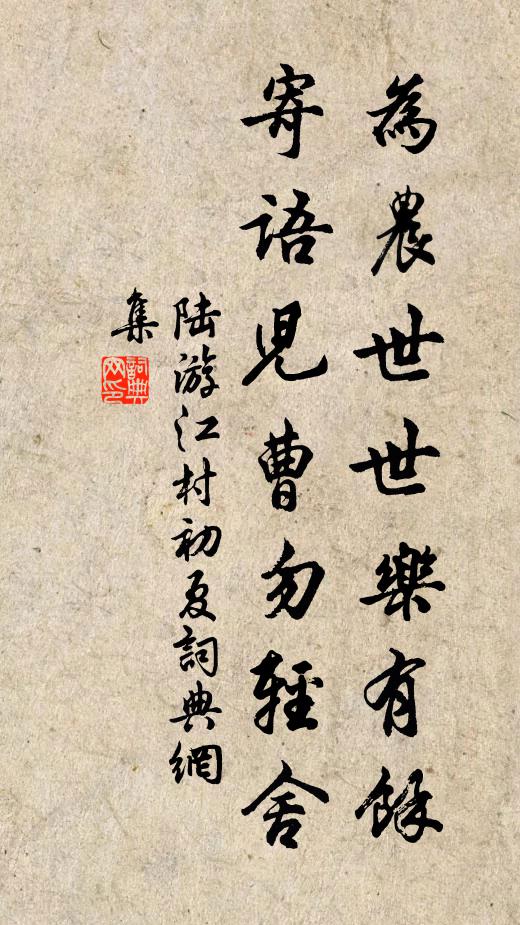 為農世世樂有餘
寄語兒曹勿輕舍
陆游江村初夏詞典網
集
詞典网印